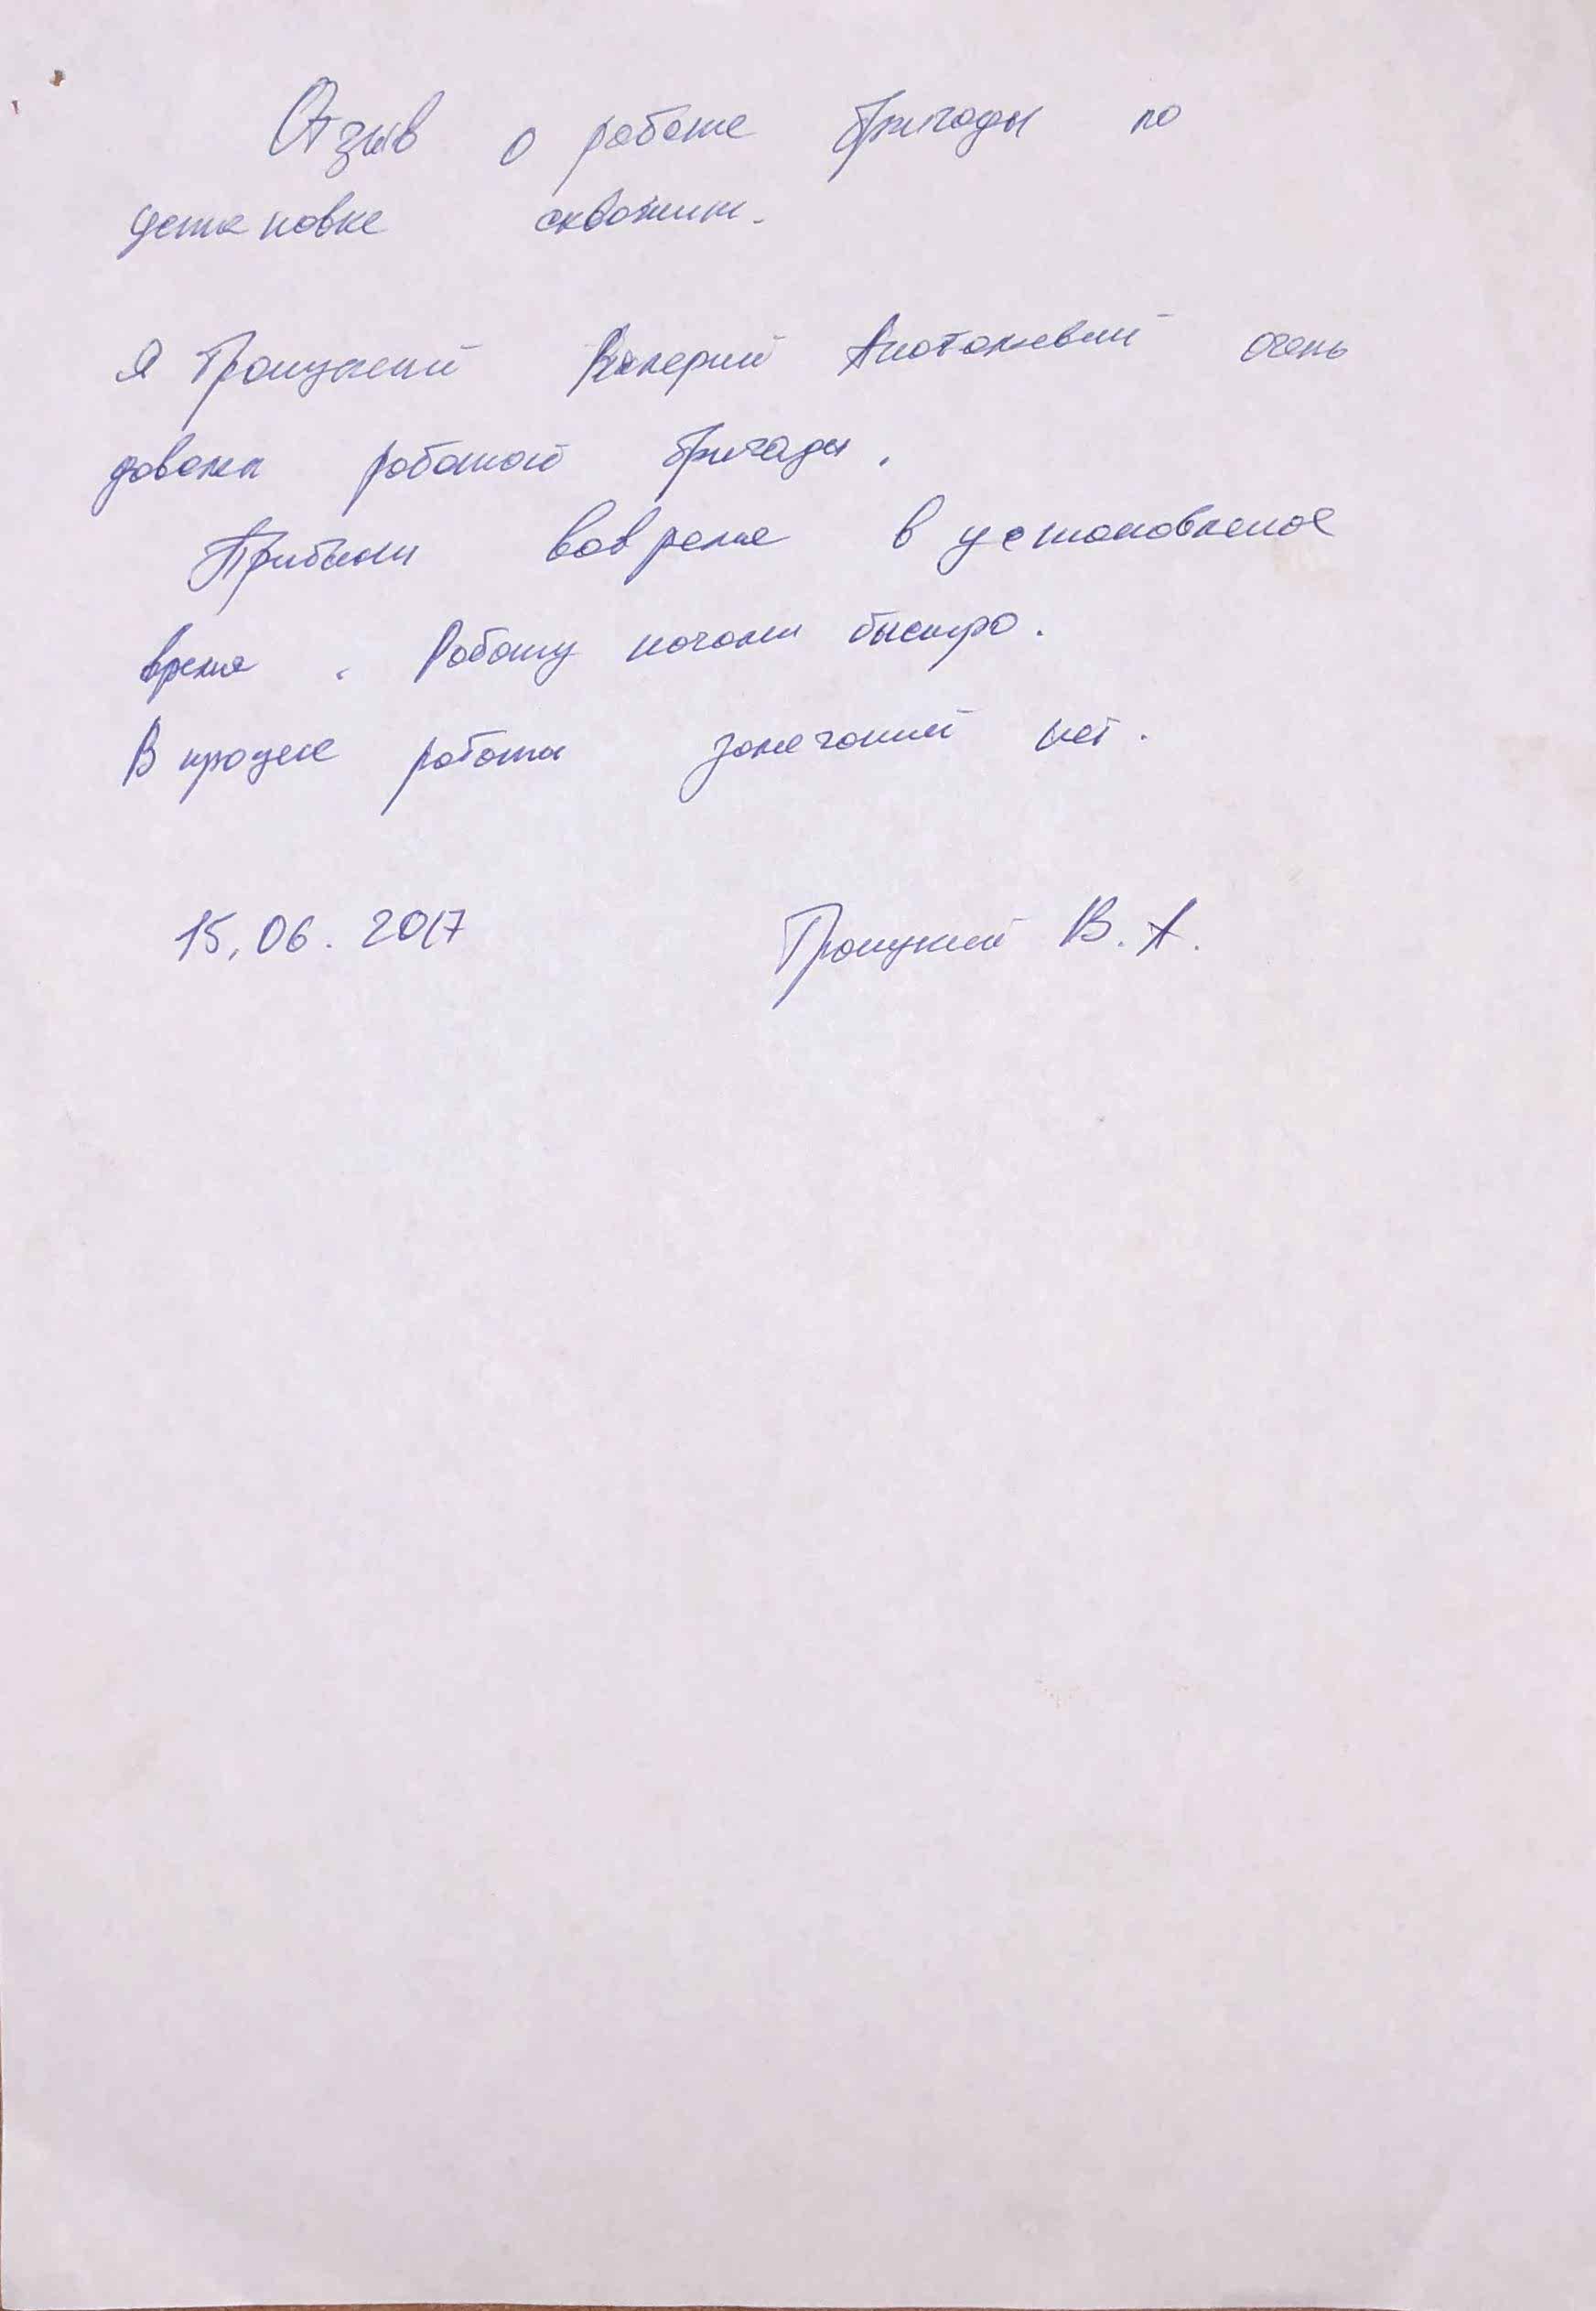 Отзыв о работе бригады по
установке скважин.
Я Троицкий Валерий Анатольевич очень
доволен работой бригады.
Прибыли вовремя в установленое
время. Работу начали быстро.
В процессе работы замечаний нет.
15.06.2017 Троицкий В.А.